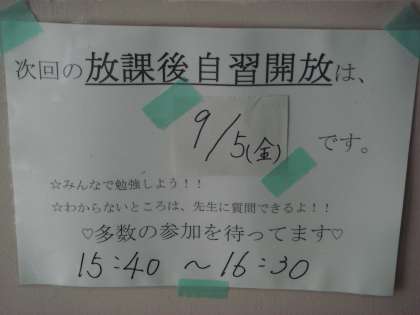 次回の放課後自習開放は、
9/5(金)です。
☆みんなで勉強しよう!!
☆わからないところは、先生に質問できるよ!!
♡多数の参加を待ってます♡
15:40 〜16:30